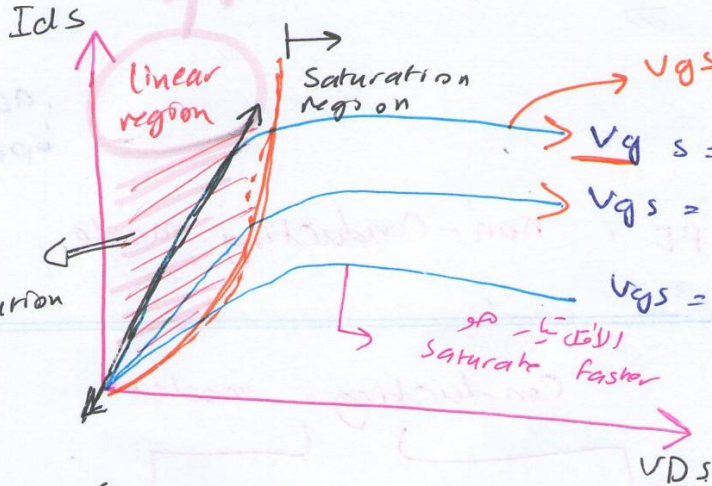 Ids
linear
region
Saturation
region
Vgs
Vgs =
Vgs =
Vgs =
saturate faster
VDs